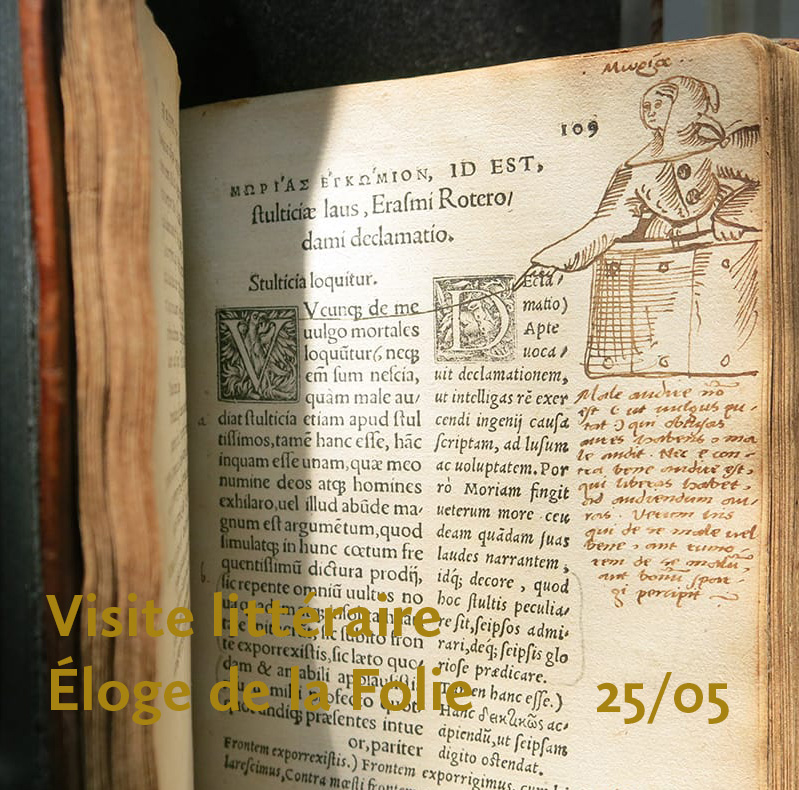 Μωρία
109
ΜΩΡΙ'ΑΣ ΕΓΚΩ'ΜΙΟΝ, ID EST,
ſtulticiæ laus, Eraſmi Rotero/
dami declamatio.
Stulticia loquitur.
Vcunqꝫ de me
uulgo mortales
loquũtur, neqꝫ
em̃ ſum neſcia,
quàm male au/
diat ſtulticia etiam apud ſtul
tiſſimos, tamẽ hanc eſſe, hãc
inquam eſſe unam, quæ meo
numine deos atqꝫ homines
exhilaro, uel illud abũde ma/
gnum eſt argumẽtum, quod
ſimulatqꝫ in hunc cœtum fre
quentiſſimũ dictura prodij,
ſic repente omniũ uultus no
te exporrexiſtis, ſic læto quo/
præſentes intue
or, pariter
Decla/
matio)
Apte
uoca/
uit declamationem,
ut intelligas rẽ exer
cendi ingenij cauſa
ſcriptam, ad luſum
ac uoluptatem. Por
rò Moriam fingit
ueterum more ceu
deam quãdam ſuas
laudes narrantem,
idqꝫ decore, quod
hoc ſtultis peculia/
re ſit, ſeipſos admi/
rari, deqꝫ ſeipſis glo
rioſe prædicare.
hanc eſſe.)
Hanc δεικτικῶς ac/
cipiendũ, ut ſeipſam
digito oſtendat.
Frontem exporrexiſtis.) Frontem exporrigimus, cum
lareſcimus, Contra mœſti
Male audire nõ
est
aures habens
le audit. Nec e con-
tra bene audire est,
qui libros habet,
ad audiendum
qui de se male vel
bene
percipit
Visite littéraire
Éloge de la Folie 25/05